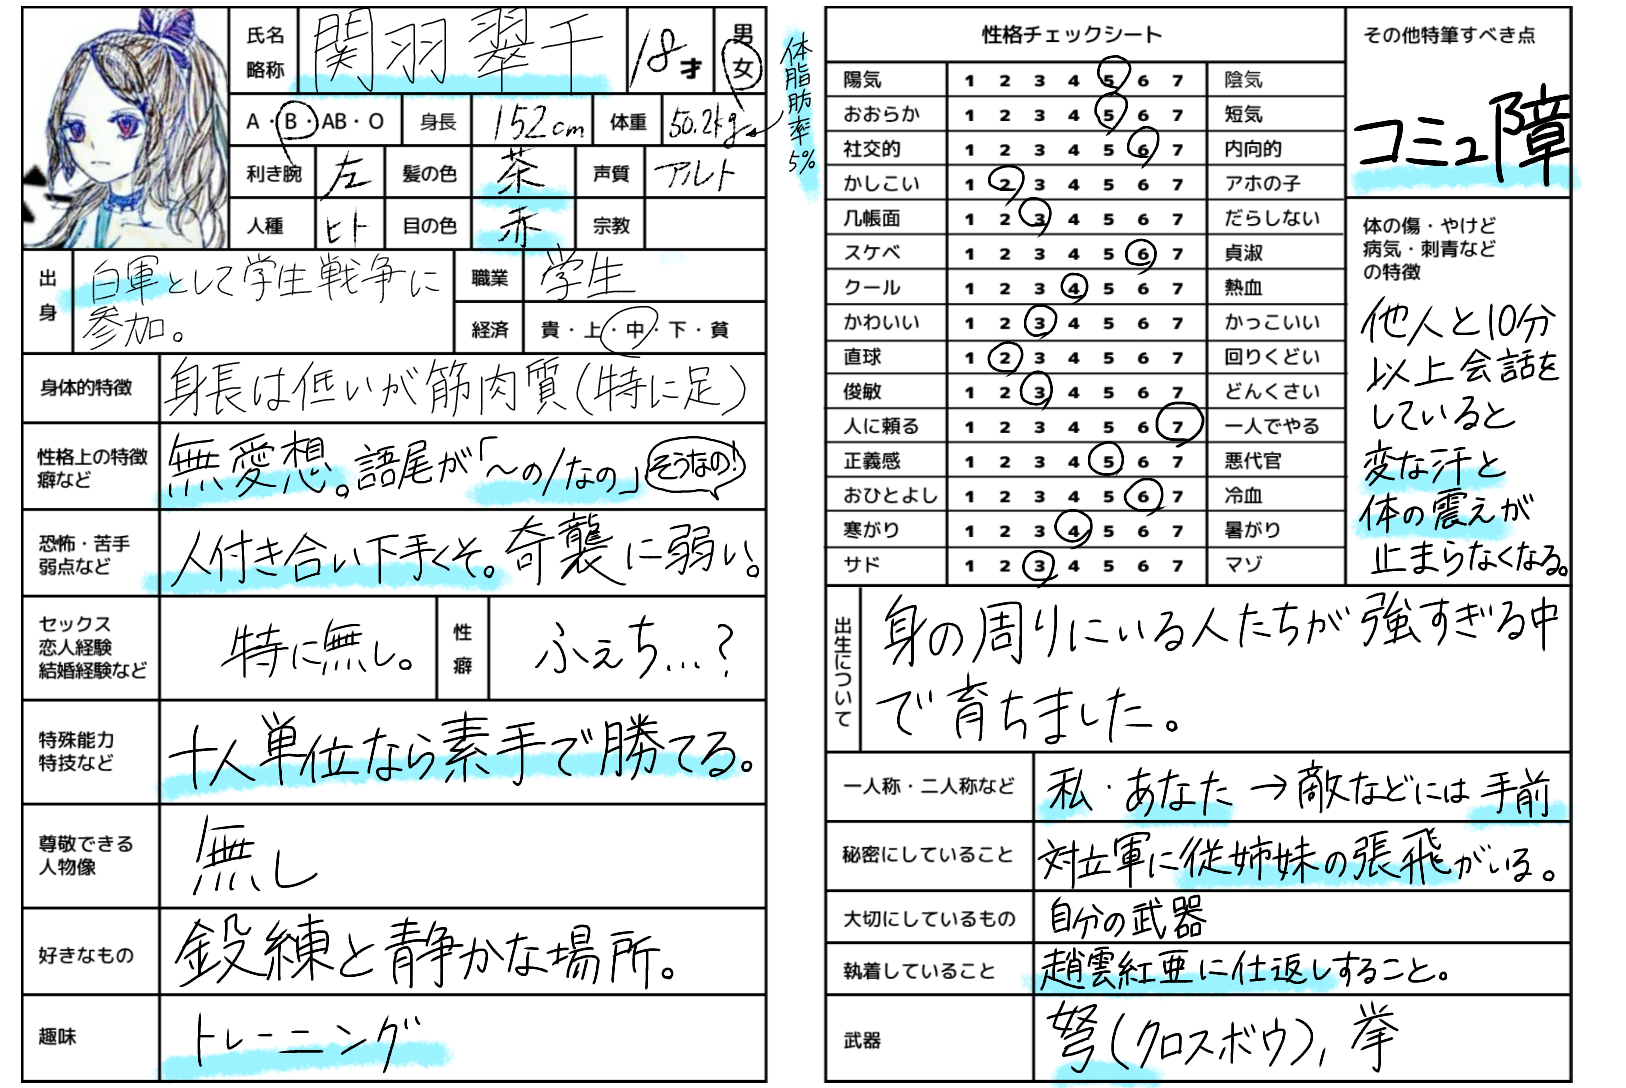 氏名
略称
関羽翠千
18才
男
女
体脂肪率5%
A・B・AB・O
身長
152cm
体重
50.2kg
利き腕
左
髪の色
茶
声質
アルト
人種
ヒト
目の色
赤
宗教
出身
白軍として学生戦争に
参加。
職業
学生
経済
貴・上・中・下・貧
身体的特徴
身長は低いが筋肉質(特に足)
性格上の特徴
癖など
無愛想。語尾が「～の/なの」
そうなの!
恐怖・苦手
弱点など
人付き合い下手くそ。奇襲に弱い。
セックス
恋人経験
結婚経験など
特に無し。
性癖
ふぇち…?
特殊能力
特技など
十人単位なら素手で勝てる。
尊敬できる
人物像
無し
好きなもの
鍛練と静かな場所。
趣味
トレーニング
性格チェックシート
陽気 1 2 3 4 5 6 7 陰気
おおらか 1 2 3 4 5 6 7 短気
社交的 1 2 3 4 5 6 7 内向的
かしこい 1 2 3 4 5 6 7 アホの子
几帳面 1 2 3 4 5 6 7 だらしない
スケベ 1 2 3 4 5 6 7 貞淑
クール 1 2 3 4 5 6 7 熱血
かわいい 1 2 3 4 5 6 7 かっこいい
直球 1 2 3 4 5 6 7 回りくどい
俊敏 1 2 3 4 5 6 7 どんくさい
人に頼る 1 2 3 4 5 6 7 一人でやる
正義感 1 2 3 4 5 6 7 悪代官
おひとよし 1 2 3 4 5 6 7 冷血
寒がり 1 2 3 4 5 6 7 暑がり
サド 1 2 3 4 5 6 7 マゾ
その他特筆すべき点
コミュ障
体の傷・やけど
病気・刺青など
の特徴
他人と10分
以上会話を
していると
変な汗と
体の震えが
止まらなくなる。
出生について
身の周りにいる人たちが強すぎる中
で育ちました。
一人称・二人称など
私・あなた→敵などには手前
秘密にしていること
対立軍に従姉妹の張飛がいる。
大切にしているもの
自分の武器
執着していること
趙雲紅亜に仕返しすること。
武器
弩(クロスボウ),拳